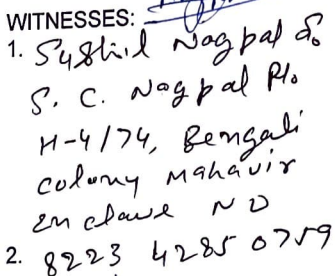 WITNESSES:
1. Sushil Nagpal S/o
S. C. Nagpal R/o
H-4/74, Bengali
colony Mahavir
Enclave ND
2. 8223 4285 0759